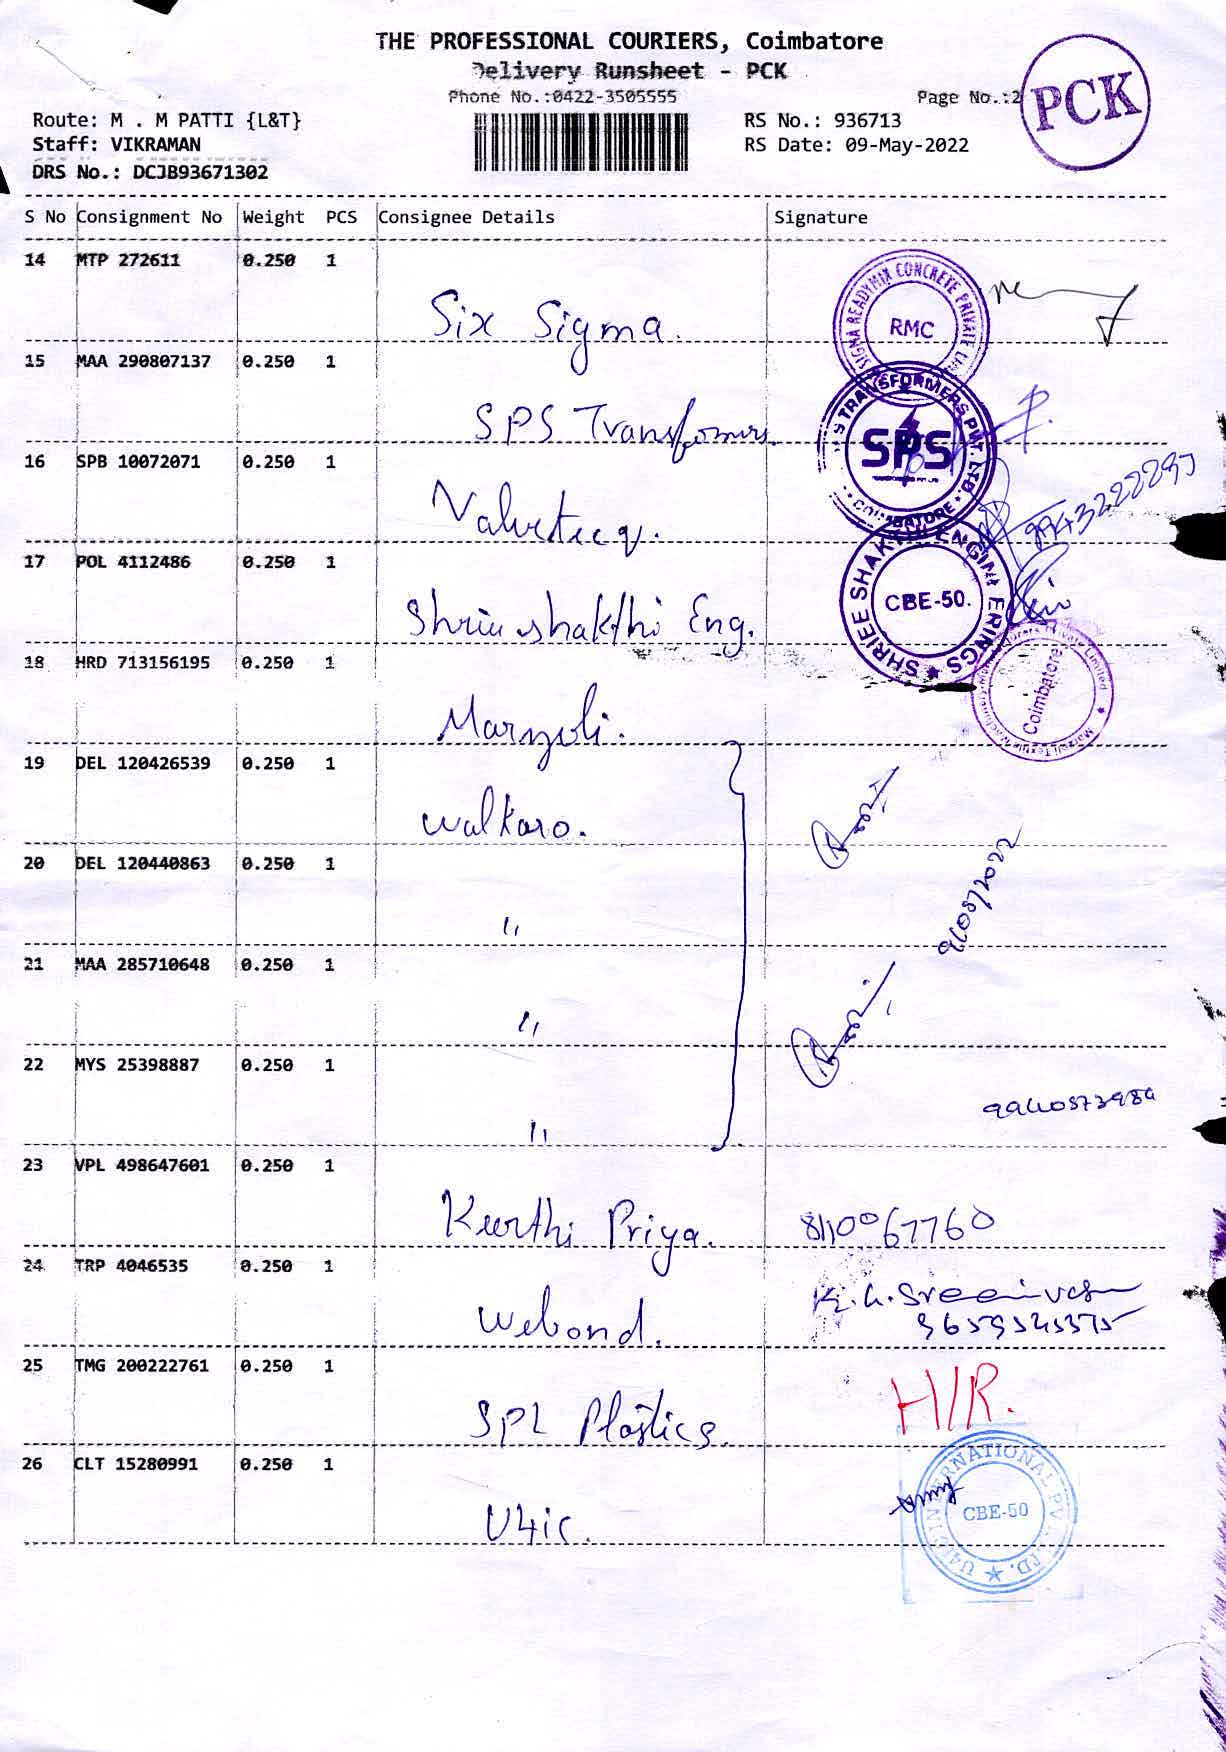 THE PROFESSIONAL COURIERS, Coimbatore
Delivery Runsheet - PCK
Phone No.:0422-3505555
Page No.:2
PCK
Route: M . M PATTI {L&T}
RS No.: 936713
Staff: VIKRAMAN
RS Date: 09-May-2022
DRS No.: DCJB93671302
S No Consignment No Weight PCS Consignee Details Signature
14 MTP 272611 0.250 1
Six Sigma.
SIGMA READYMIX CONCRETE PRIVATE
RMC
15 MAA 290807137 0.250 1
SPS Transformers
TRANSFORMERS PVT. LTD.
SPS
COIMBATORE
16 SPB 10072071 0.250 1
9943222293
17 POL 4112486 0.250 1
Eng.
SHRIEE SHAKTHI ENGINEERINGS
CBE-50.
18 HRD 713156195 0.250 1
Marzoli.
Marzoli Textile Machinery Private Limited
Coimbatore
19 DEL 120426539 0.250 1
Walkaro.
20 DEL 120440863 0.250 1
"
21 MAA 285710648 0.250 1
"
22 MYS 25398887 0.250 1
"
23 VPL 498647601 0.250 1
Keerthi Priya. 8110067760
24 TRP 4046535 0.250 1
Webond. K.G.Sreenivasan
25 TMG 200222761 0.250 1
SPL Plastics. H/R.
26 CLT 15280991 0.250 1
U4ic.
U4IC INTERNATIONAL PVT. LTD.
CBE-50